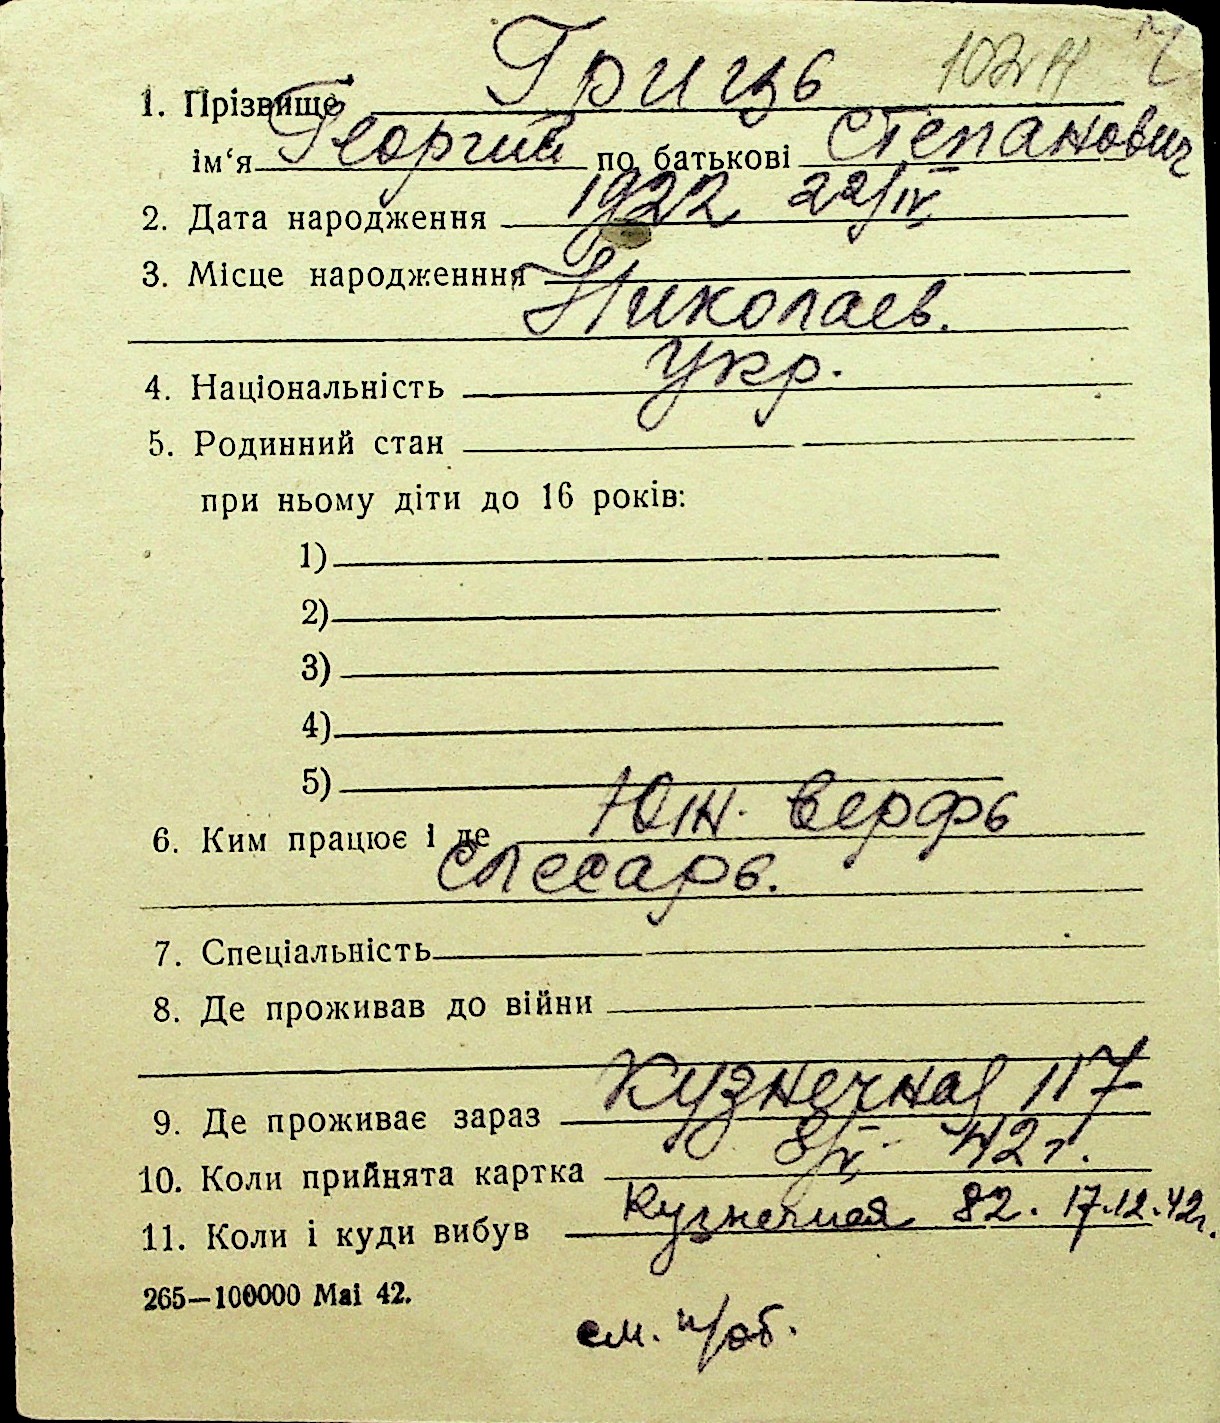 1. Прізвище Гриць
ім‘я Георгий по батькові Степанович
2. Дата народження 1922 22/IV
3. Місце народженння
Николаев.
4. Національність укр.
5. Родинний стан
при ньому діти до 16 років:
1)
2)
3)
4)
5)
6. Ким працює і де Юж. верфь
слесарь.
7. Спеціальність
8. Де проживав до війни
9. Де проживає зараз Кузнечная 117
10. Коли прийнята картка 8/V 42 г.
11. Коли і куди вибув Кузнечная 82. 17.12.42г.
265—100000 Mai 42.
см. н/об.